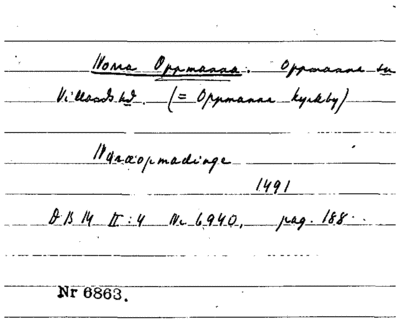 Norra Oppmanna. Oppmanna sn
Villands hd. (= Oppmanna kyrkby)
Nøræopmadinge
1491
DB 14 II:4 Nr 6940, pag. 188.
Nr 6863.